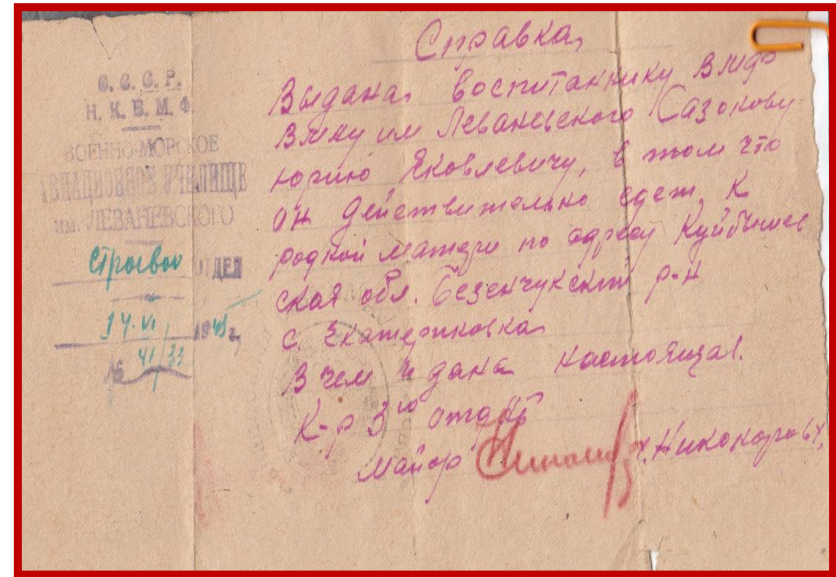 С. С. С. Р.
Н. К. В. М. Ф.
ВОЕННО-МОРСКОЕ
АВИАЦИОННОЕ УЧИЛИЩЕ
им. ЛЕВАНЕВСКОГО
Строевой ОТДЕЛ
14.VI. 1945 г.
№ 41/33
Справка
Выдана воспитаннику ВМФ
ВМАУ им Леваневского Сазонову
Юрию Яковлевичу, в том что
он действительно едет, к
родной матери по адресу Куйбышев
ская обл. Безенчукский р-н
с. Екатериновка
В чем и дана настоящая.
К-р 3го
майор /Никоноров/